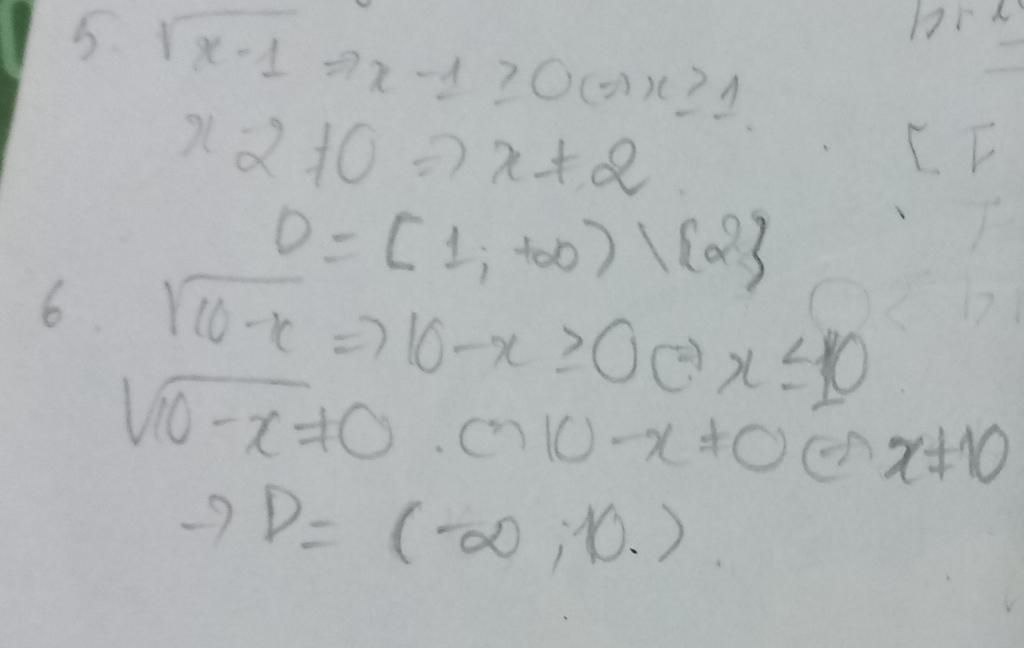 5. √x-1 ⇒ x-1 ≥ 0 ⇔ x ≥ 1.
x-2 ≠ 0 ⇒ x ≠ 2.
D = [1; +∞) \ {2}
6. √10-x ⇒ 10-x ≥ 0 ⇔ x ≤ 10.
√10-x ≠ 0. ⇔ 10-x ≠ 0 ⇔ x ≠ 10
→ D = (-∞; 10.).